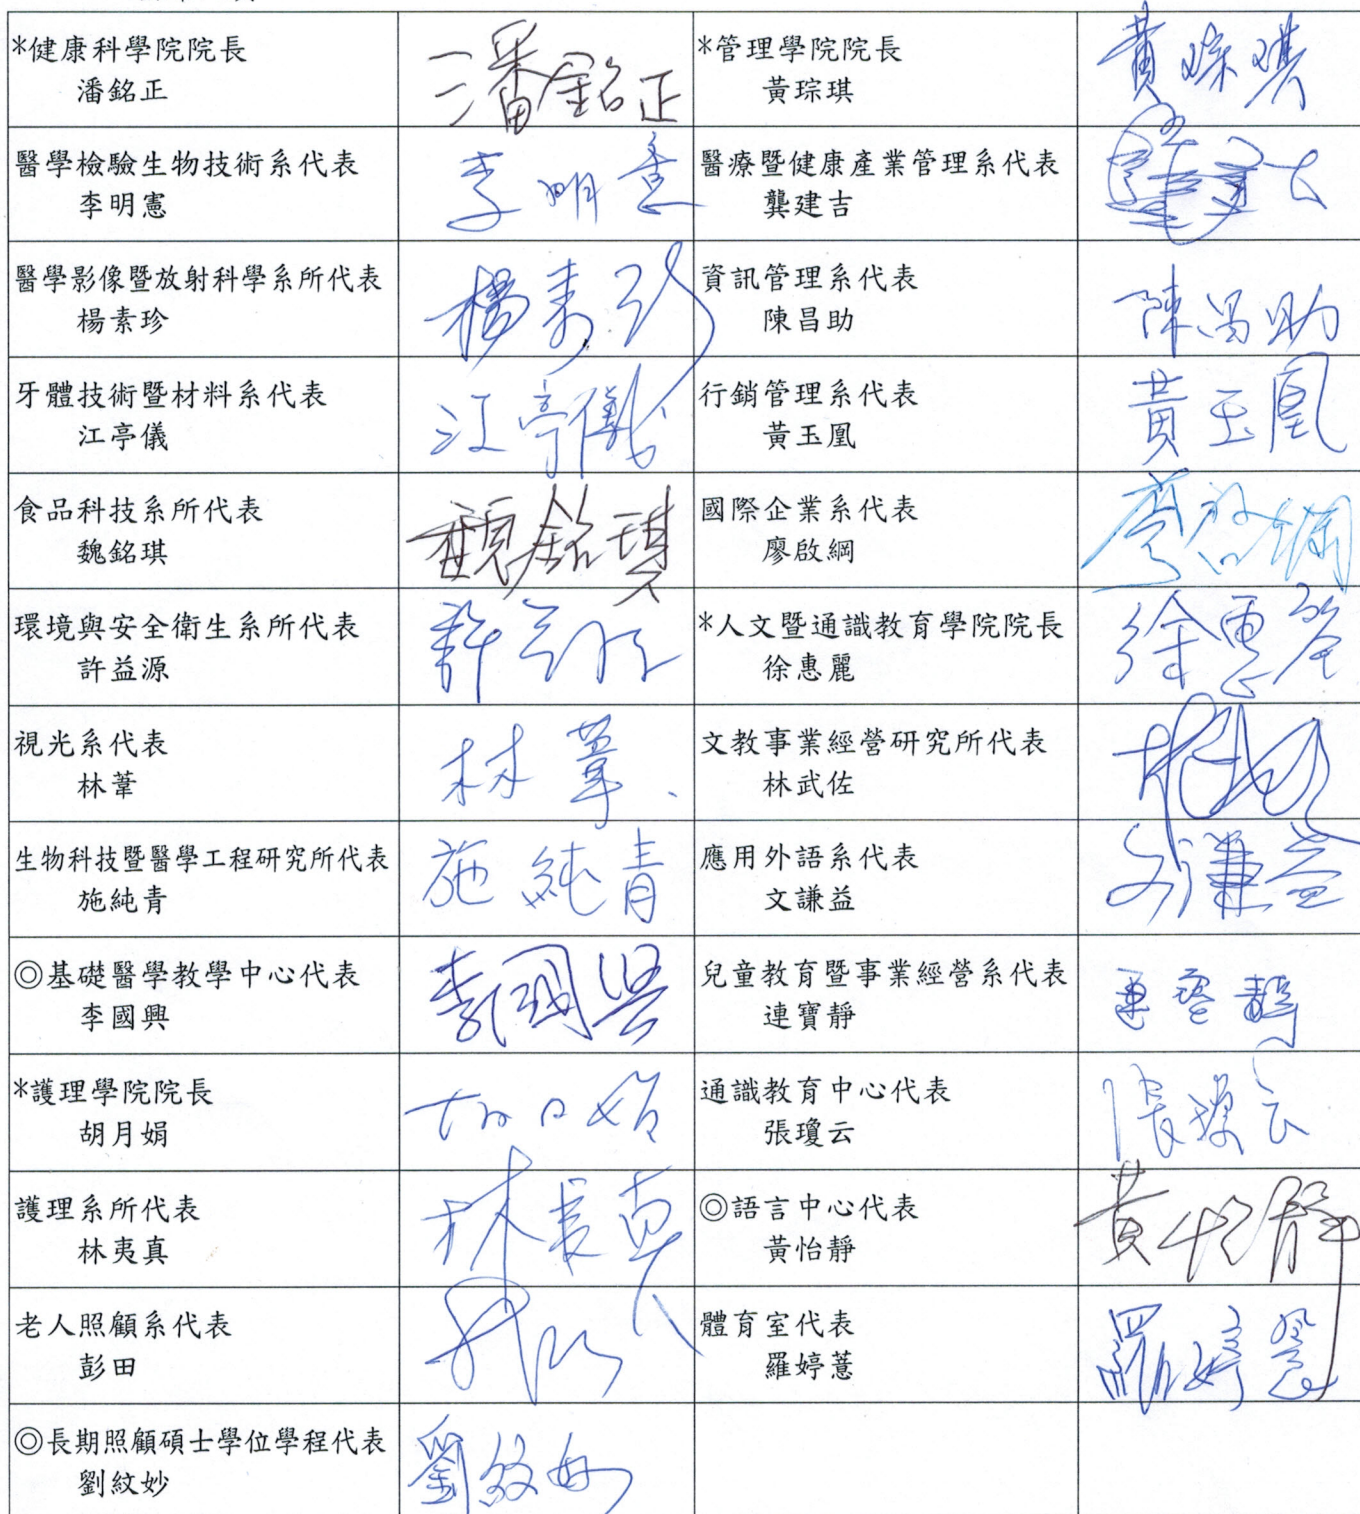 *健康科學院院長
潘銘正
潘銘正
*管理學院院長
黃琮琪
黃琮琪
醫學檢驗生物技術系代表
李明憲
李明憲
醫療暨健康產業管理系代表
龔建吉
醫學影像暨放射科學系所代表
楊素珍
楊素珍
資訊管理系代表
陳昌助
陳昌助
牙體技術暨材料系代表
江亭儀
江亭儀
行銷管理系代表
黃玉凰
黃玉凰
食品科技系所代表
魏銘琪
魏銘琪
國際企業系代表
廖啟綱
廖啟綱
環境與安全衛生系所代表
許益源
許益源
*人文暨通識教育學院院長
徐惠麗
徐惠麗
視光系代表
林葦
林葦
文教事業經營研究所代表
林武佐
生物科技暨醫學工程研究所代表
施純青
施純青
應用外語系代表
文謙益
文謙益
◎基礎醫學教學中心代表
李國興
李國興
兒童教育暨事業經營系代表
連寶靜
連寶靜
*護理學院院長
胡月娟
通識教育中心代表
張瓊云
張瓊云
護理系所代表
林夷真
林夷真
◎語言中心代表
黃怡靜
黃怡靜
老人照顧系代表
彭田
體育室代表
羅婷薏
羅婷薏
◎長期照顧碩士學位學程代表
劉紋妙
劉紋妙